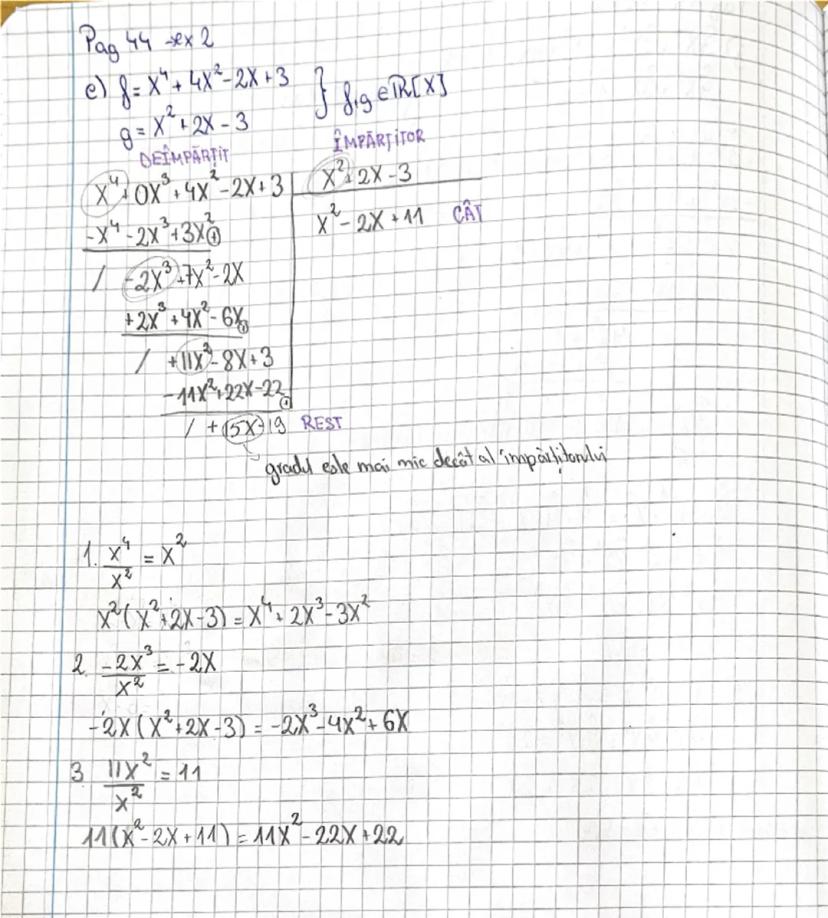 Pag 44 ex 2
e) f = X⁴ + 4X² - 2X + 3 } f,g ∈ ℝ[X]
g = X² + 2X - 3
DEÎMPĂRȚIT ÎMPĂRȚITOR
X⁴ + 0X³ + 4X² - 2X + 3 | X² + 2X - 3
-X⁴ - 2X³ + 3X² ⊕ | X² - 2X + 11 CÂT
/ -2X³ + 7X² - 2X
+2X³ + 4X² - 6X ⊕
/ +11X² - 8X + 3
-11X² + 22X - 22 ⊕
/ + 15X - 19 REST
gradul este mai mic decât al împărțitorului
1. X⁴/X² = X²
X²(X² + 2X - 3) = X⁴ + 2X³ - 3X²
2 -2X³/X² = -2X
-2X(X² + 2X - 3) = -2X³ - 4X² + 6X
3 11X²/X² = 11
11(X² - 2X + 11) = 11X² - 22X + 22